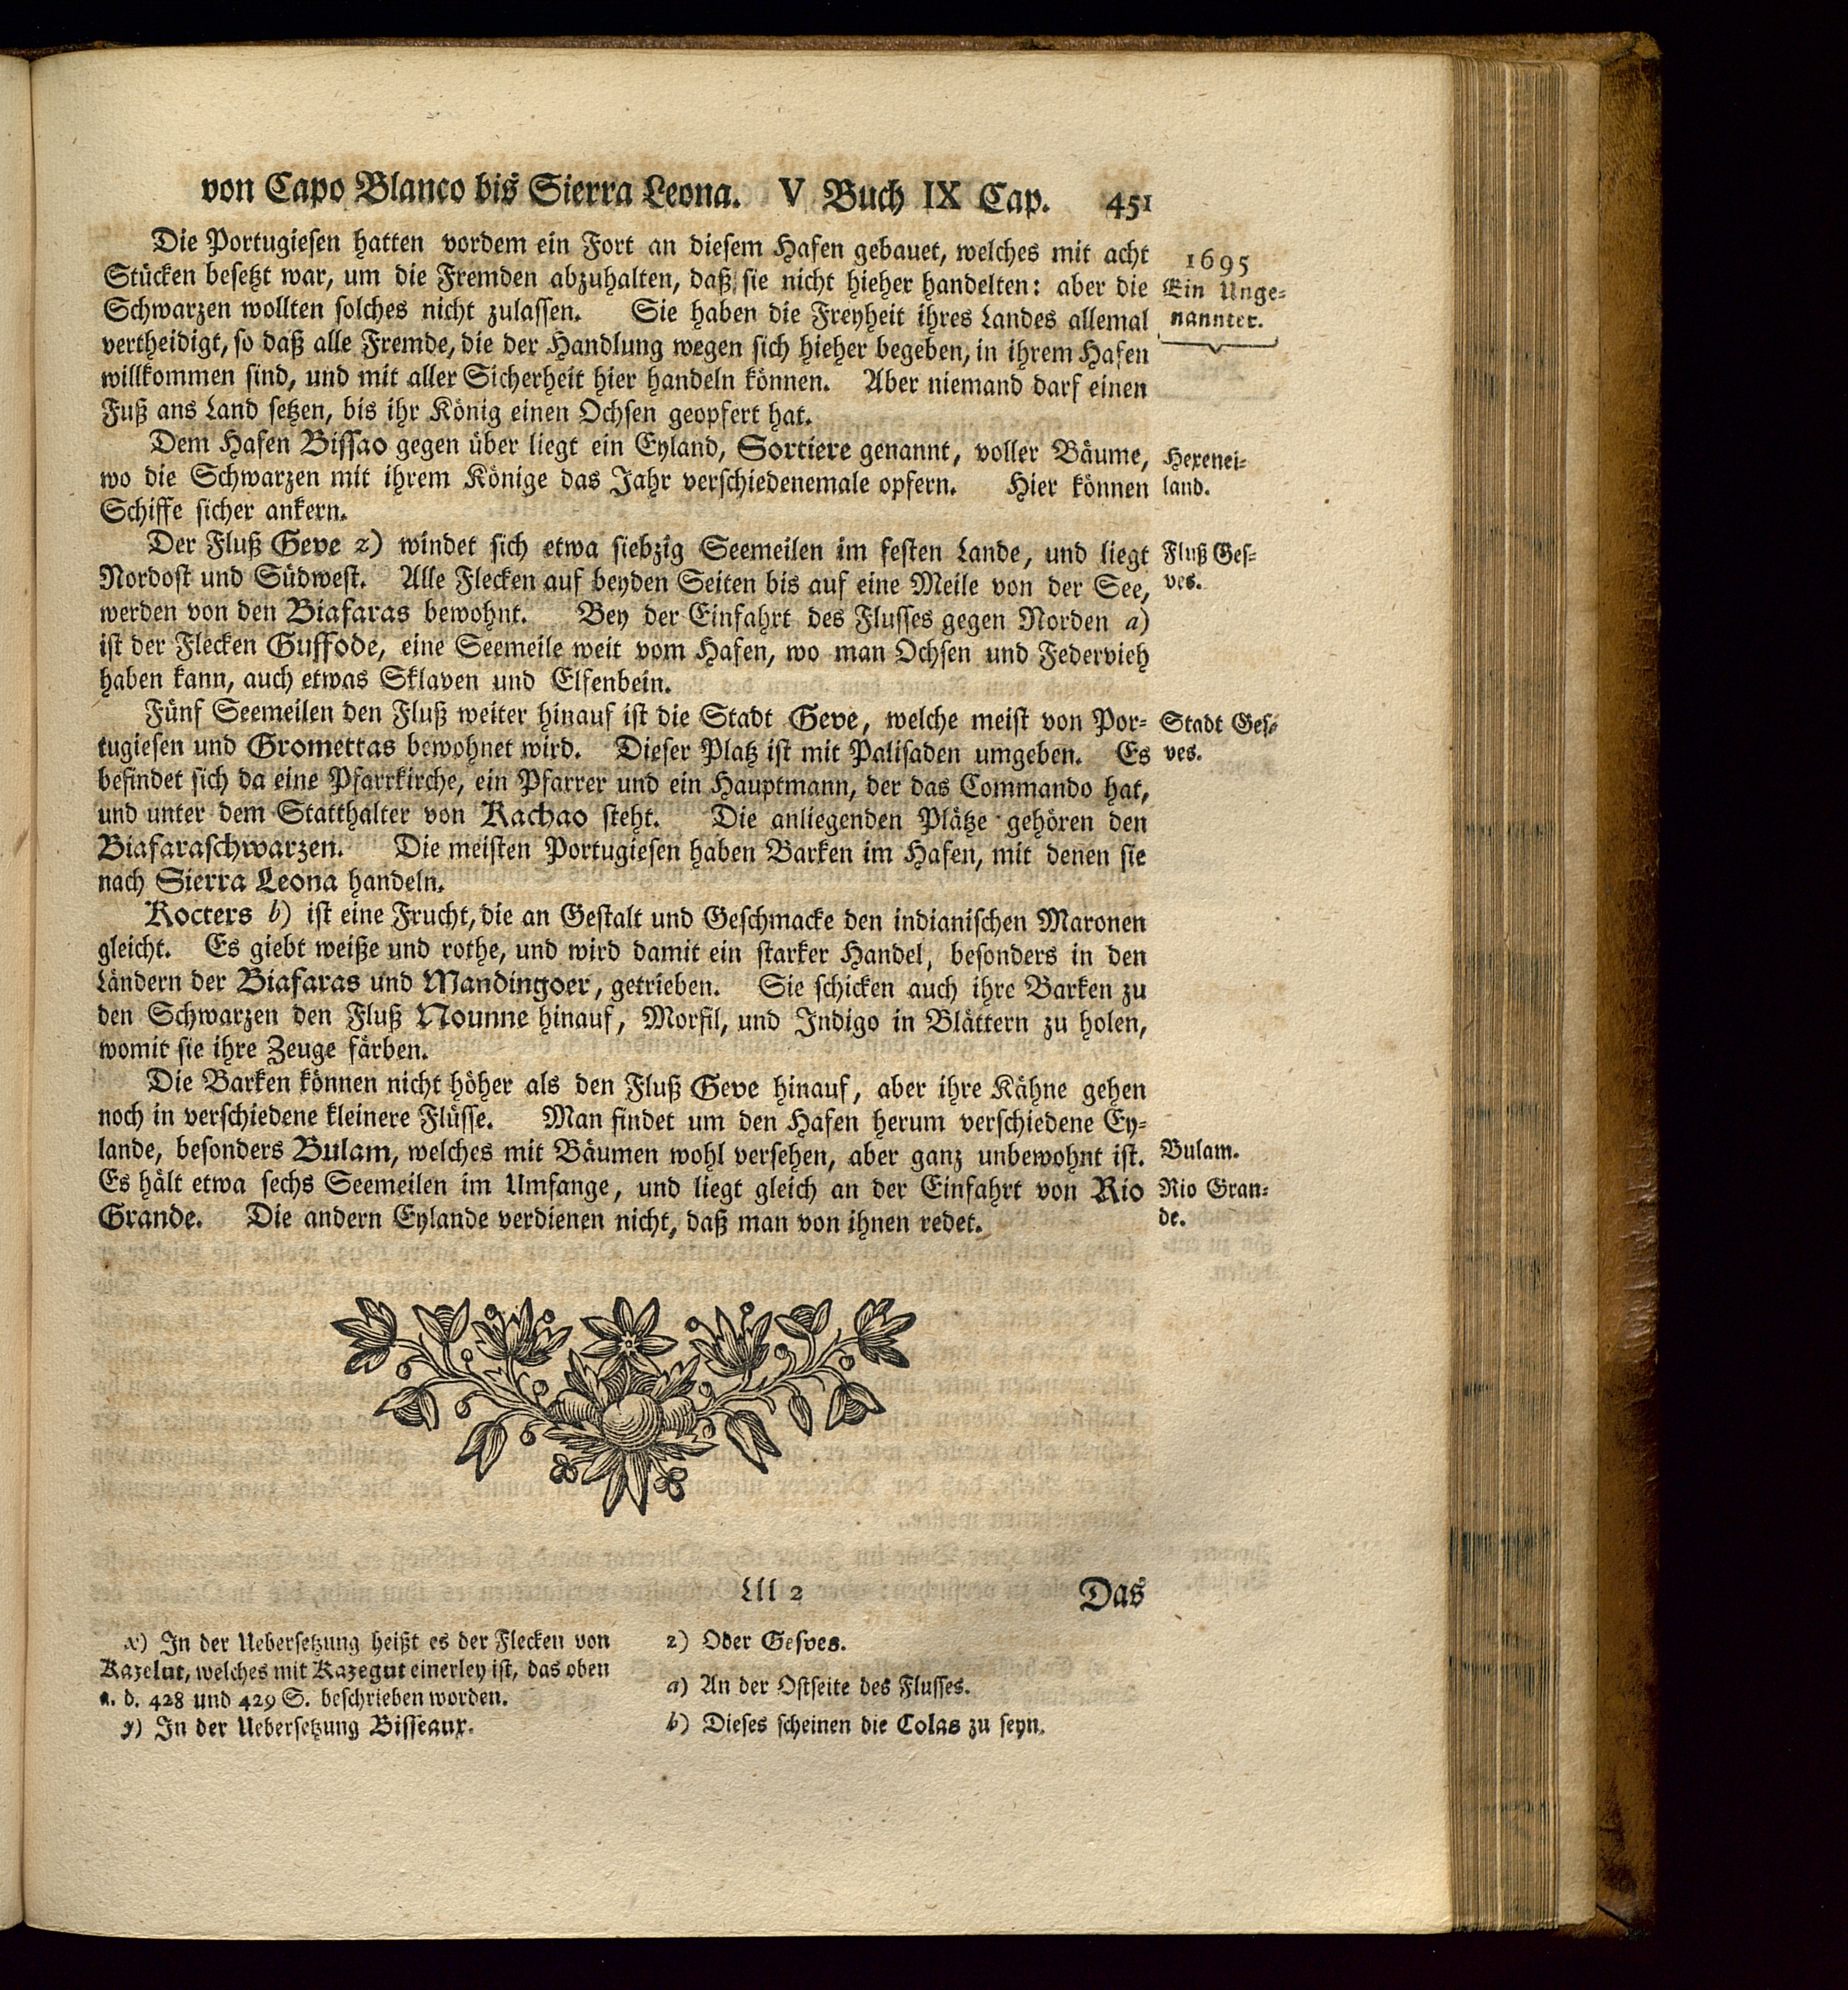 von Capo Blanco bis Sierra Leona. V Buch IX Cap. 451
Die Portugiesen hatten vordem ein Fort an diesem Hafen gebauet, welches mit acht
Stücken besetzt war, um die Fremden abzuhalten, daß sie nicht hieher handelten: aber die
Schwarzen wollten solches nicht zulassen. Sie haben die Freyheit ihres Landes allemal
vertheidigt, so daß alle Fremde, die der Handlung wegen sich hieher begeben, in ihrem Hafen
willkommen sind, und mit aller Sicherheit hier handeln können. Aber niemand darf einen
Fuß ans Land setzen, bis ihr König einen Ochsen geopfert hat.
1695
Ein Unge-
nannter.
Dem Hafen Bissao gegen über liegt ein Eyland, Sortiere genannt, voller Bäume,
wo die Schwarzen mit ihrem Könige das Jahr verschiedenemale opfern. Hier können
Schiffe sicher ankern.
Hexenei-
land.
Der Fluß Geve z) windet sich etwa siebzig Seemeilen im festen Lande, und liegt
Nordost und Südwest. Alle Flecken auf beyden Seiten bis auf eine Meile von der See,
werden von den Biafaras bewohnt. Bey der Einfahrt des Flusses gegen Norden a)
ist der Flecken Guffode, eine Seemeile weit vom Hafen, wo man Ochsen und Federvieh
haben kann, auch etwas Sklaven und Elfenbein.
Fluß Ges-
ves.
Fünf Seemeilen den Fluß weiter hinauf ist die Stadt Geve, welche meist von Por-
tugiesen und Gromettas bewohnet wird. Dieser Platz ist mit Palisaden umgeben. Es
befindet sich da eine Pfarrkirche, ein Pfarrer und ein Hauptmann, der das Commando hat,
und unter dem Statthalter von Kachao steht. Die anliegenden Plätze gehören den
Biafaraschwarzen. Die meisten Portugiesen haben Barken im Hafen, mit denen sie
nach Sierra Leona handeln.
Stadt Ges-
ves.
Kocters b) ist eine Frucht, die an Gestalt und Geschmacke den indianischen Maronen
gleicht. Es giebt weiße und rothe, und wird damit ein starker Handel, besonders in den
Ländern der Biafaras und Mandingoer, getrieben. Sie schicken auch ihre Barken zu
den Schwarzen den Fluß Nounne hinauf, Morfil, und Indigo in Blättern zu holen,
womit sie ihre Zeuge färben.
Die Barken können nicht höher als den Fluß Geve hinauf, aber ihre Kähne gehen
noch in verschiedene kleinere Flüsse. Man findet um den Hafen herum verschiedene Ey-
lande, besonders Bulam, welches mit Bäumen wohl versehen, aber ganz unbewohnt ist.
Es hält etwa sechs Seemeilen im Umfange, und liegt gleich an der Einfahrt von Rio
Grande. Die andern Eylande verdienen nicht, daß man von ihnen redet.
Bulam.
Rio Gran-
de.
Lll 2 Das
x) In der Uebersetzung heißt es der Flecken von
Kazelut, welches mit Kazegut einerley ist, das oben
a. d. 428 und 429 S. beschrieben worden.
y) In der Uebersetzung Bisseaux.
z) Oder Gesves.
a) An der Ostseite des Flusses.
b) Dieses scheinen die Colas zu seyn.